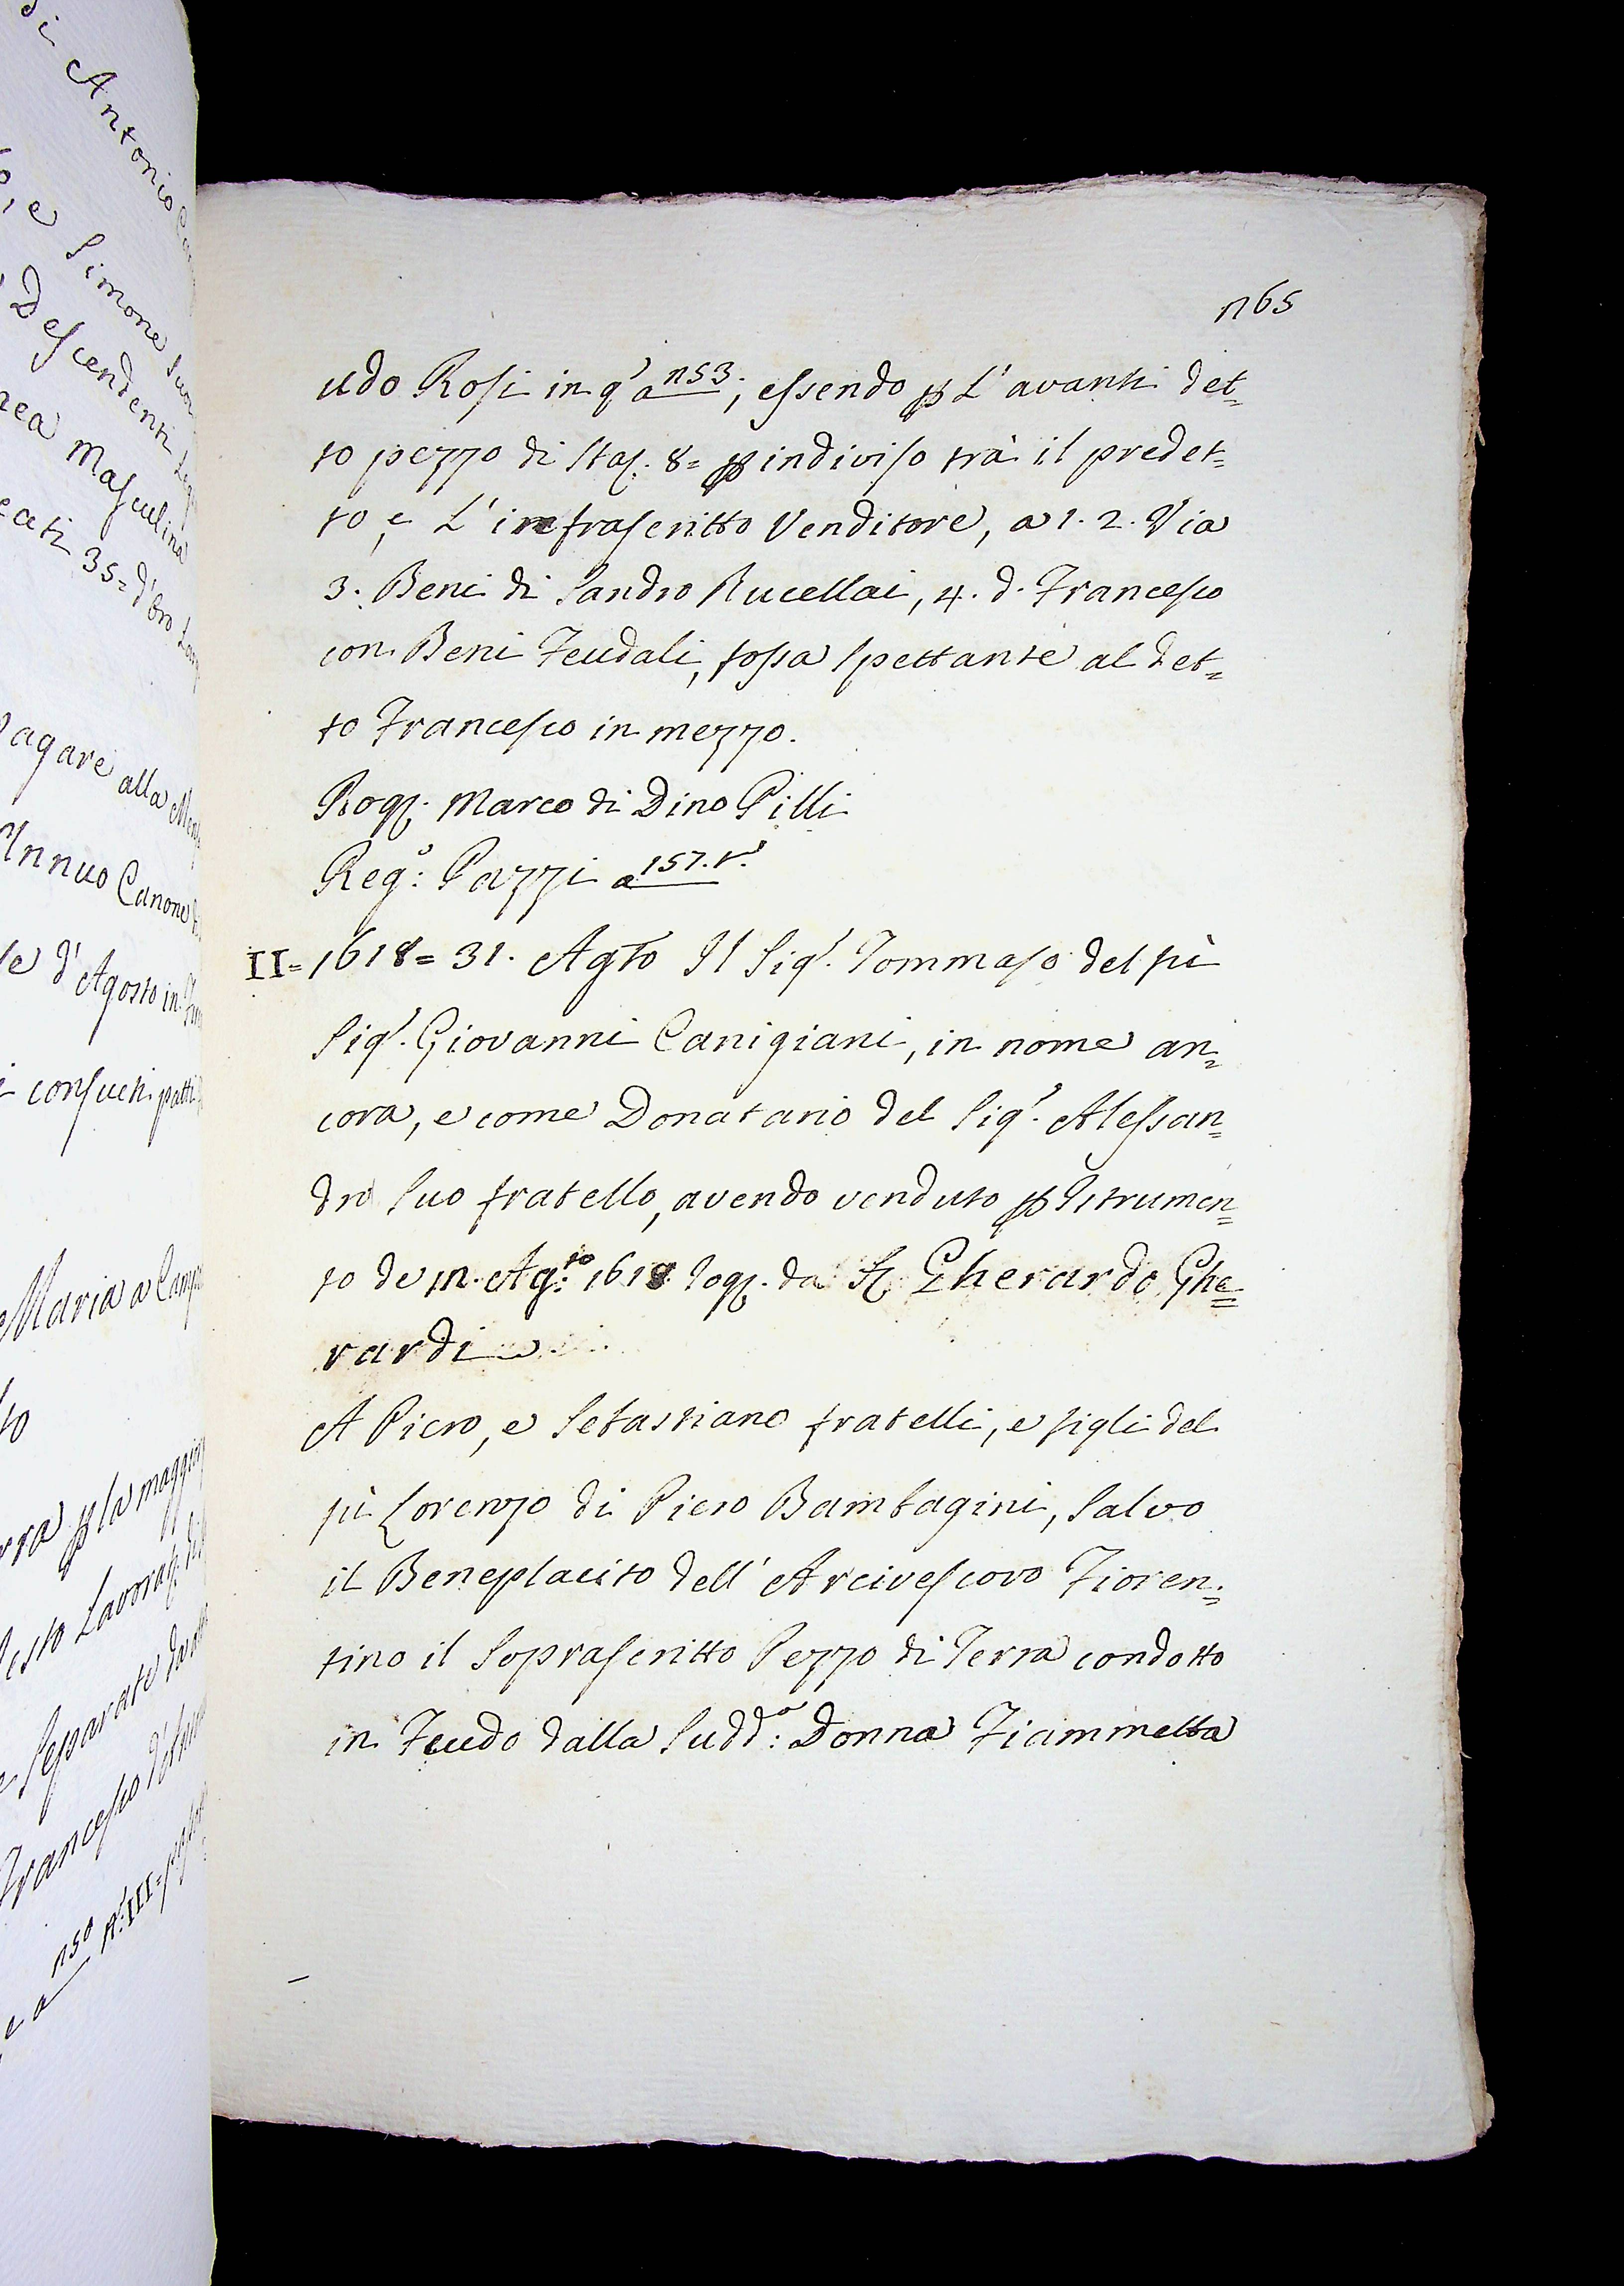 di Antonio
e Simone suoi
Descendenti
nea Masculina
cati 35= d'Oro
Pagare alla
Annuo Canone
d'Agosto in
consueti patti
Maria a
to
rra p la
Lavorat.
Separate
Francesco
a 1150 N: III=
1165
udo Rosi in q.o a 1153; essendo p L'avanti det=
to pezzo di Staj. 8= p indiviso trà il predet=
to, e L'infrascritto Venditore, a 1. 2. Via
3. Beni di Sandro Rucellai, 4. d. Francesco
con Beni Feudali, fossa spettante al det=
to Francesco in mezzo.
Rog. Marco di Dino Pilli
Reg.o: Pazzi a 157. t.o
II= 1618= 31. Agto Il Sig.r Tommaso del fù
Sig.r Giovanni Canigiani, in nome an=
cora, e come Donatario del Sig.r Alessan=
dro suo fratello, avendo venduto p Istrumen=
to de 11. Ag:to 1618 rog. da S. Gherardo Ghe=
rardi
A Piero, e Sebastiano fratelli, e figli del
fù Lorenzo di Piero Bambagini, Salvo
il Beneplacito dell' Arcivescovo Fioren=
tino il Soprascritto Pezzo di Terra condotto
in Feudo dalla Sudd:a Donna Fiammetta